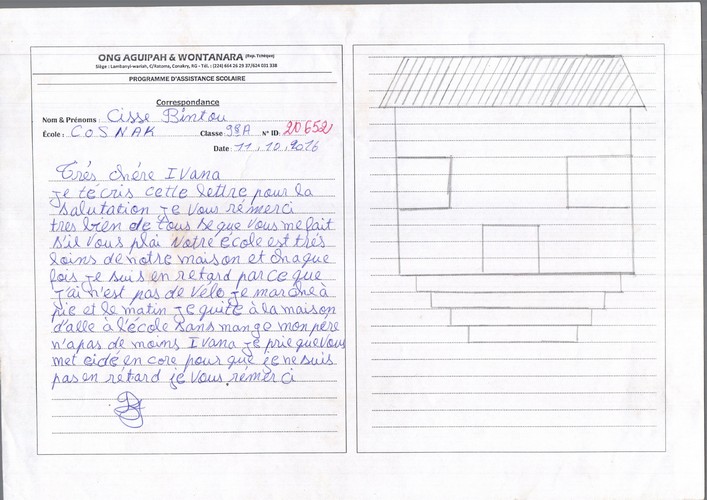 ONG AGUIPAH & WONTANARA (Rep. Tchèque)
Siège : Lambanyi-wariah, C/Ratoma, Conakry, RG - Tél. : (224) 664 26 29 37/624 001 338
PROGRAMME D'ASSISTANCE SCOLAIRE
Correspondance
Nom & Prénoms : Cisse Bintou
École : COSNAK Classe 9èA N° ID: 210652
Date : 11.10.2016
Très chére IVana
je técris cette lettre pour la
salutation je vous rémerci
tres bien de tous se que vous me fait
s'il vous plai Votre école est trés
loins de notre maison et chaque
fois je suis en retard parce que
j'ai n'est pas de vélo je marche à
pie et le matin je quite à la maison
d'alle à l'école sans mange mon père
n'a pas de moins IVana je prie que vous
met eidé en core pour que je ne suis
pas en rétard je vous rémerci